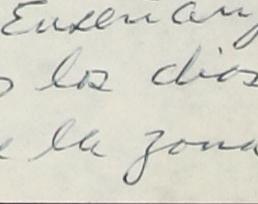 Enseñanz
los dios
la zona